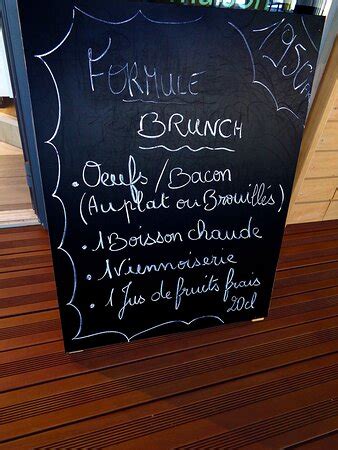 1950F
FORMULE
BRUNCH
• Oeufs/Bacon
(Au plat ou Brouillés)
• 1 Boisson chaude
• 1 Viennoiserie
• 1 Jus de fruits frais
20cl